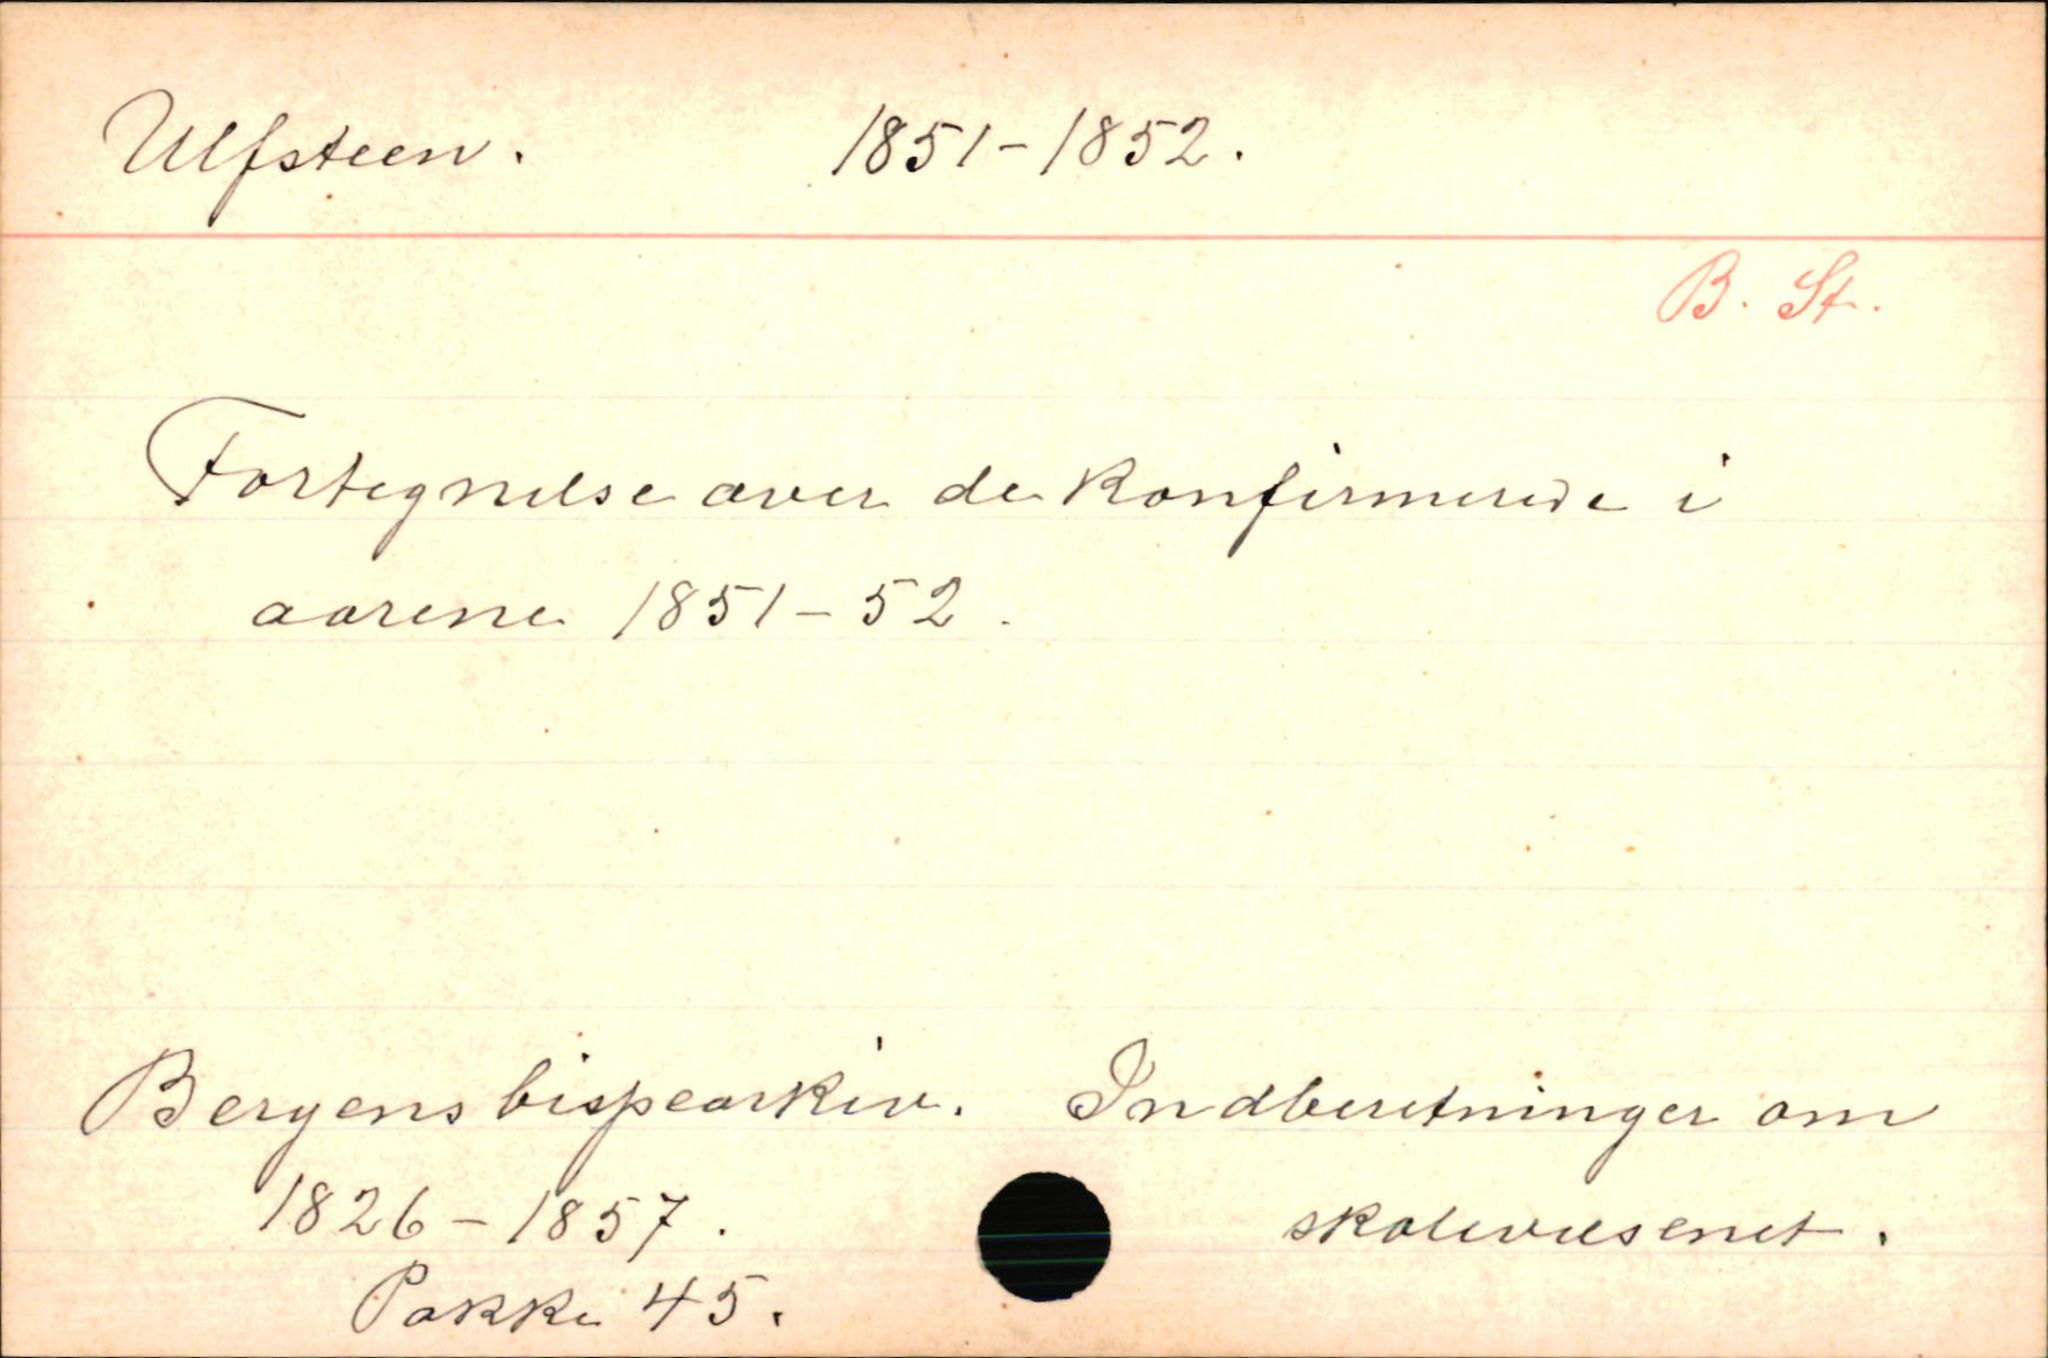 Ulfsteen. 1851-1852.
B. St.
Fortegnelse over de konfirmerede i
aarene 1851-52.
Bergens bispearkiv. Indberetninger om
1826-1857. skolevæsenet.
Pakke 45.